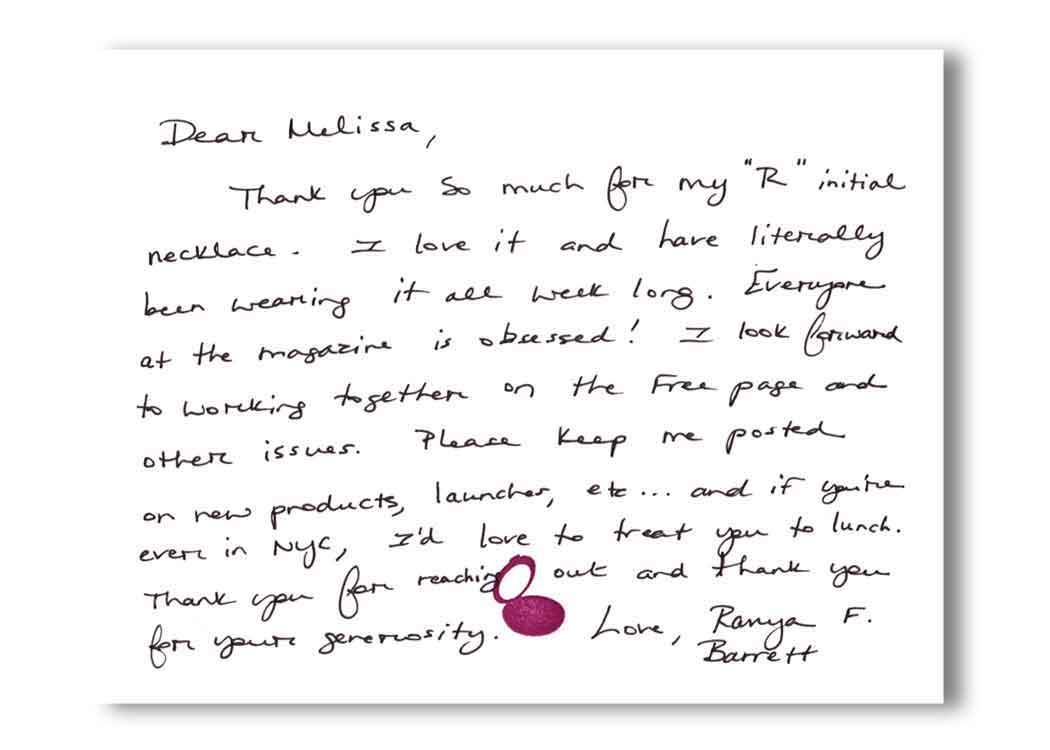 Dear Melissa,
Thank you so much for my "R" initial
necklace. I love it and have literally
been wearing it all week long. Everyone
at the magazine is obsessed! I look forward
to working together on the Free page and
other issues. Please keep me posted
on new products, launches, etc... and if you're
ever in NYC, I'd love to treat you to lunch.
Thank you for reaching out and thank you
for your generosity. Love, Ranya F.
Barrett